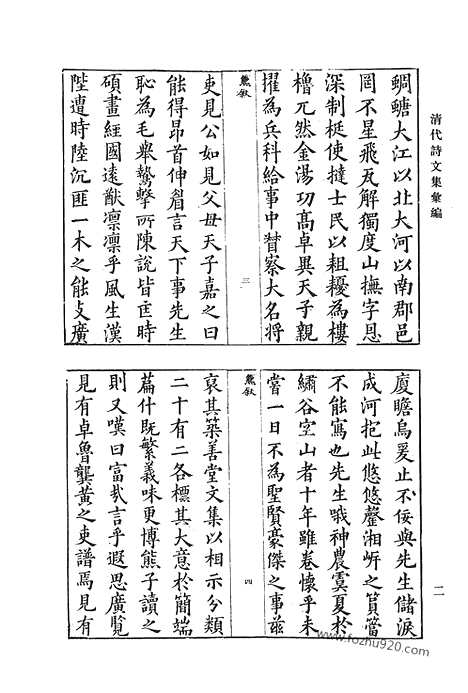 清代詩文集彙編
蜩螗大江以北大河以南郡邑
罔不星飛瓦解獨度山撫字恩
深制梃使撻士民以耝耰為樓
櫓兀然金湯功髙卓異天子親
擢為兵科給事中督察大名将
熊叙
三
吏見公如見父母天子嘉之曰
能得昂首伸眉言天下事先生
恥為毛舉鷙擊所陳說皆匡時
碩畫經國遠猷凛凛乎風生漢
陛遭時陸沉匪一木之能支廣
廈瞻烏爰止不佞與先生儲淚
成河抱此悠悠罄湘岍之篔簹
不能寫也先生哦神農虞夏於
繡谷空山者十年雖卷懷乎未
嘗一日不為聖賢豪傑之事兹
熊叙
四
裒其築善堂文集以相示分類
二十有二各標其大意於簡端
篇什既繁義味更博熊子讀之
則又嘆曰富哉言乎遐思廣覽
見有卓魯龔黃之吏譜焉見有
二
www.fozhu920.com